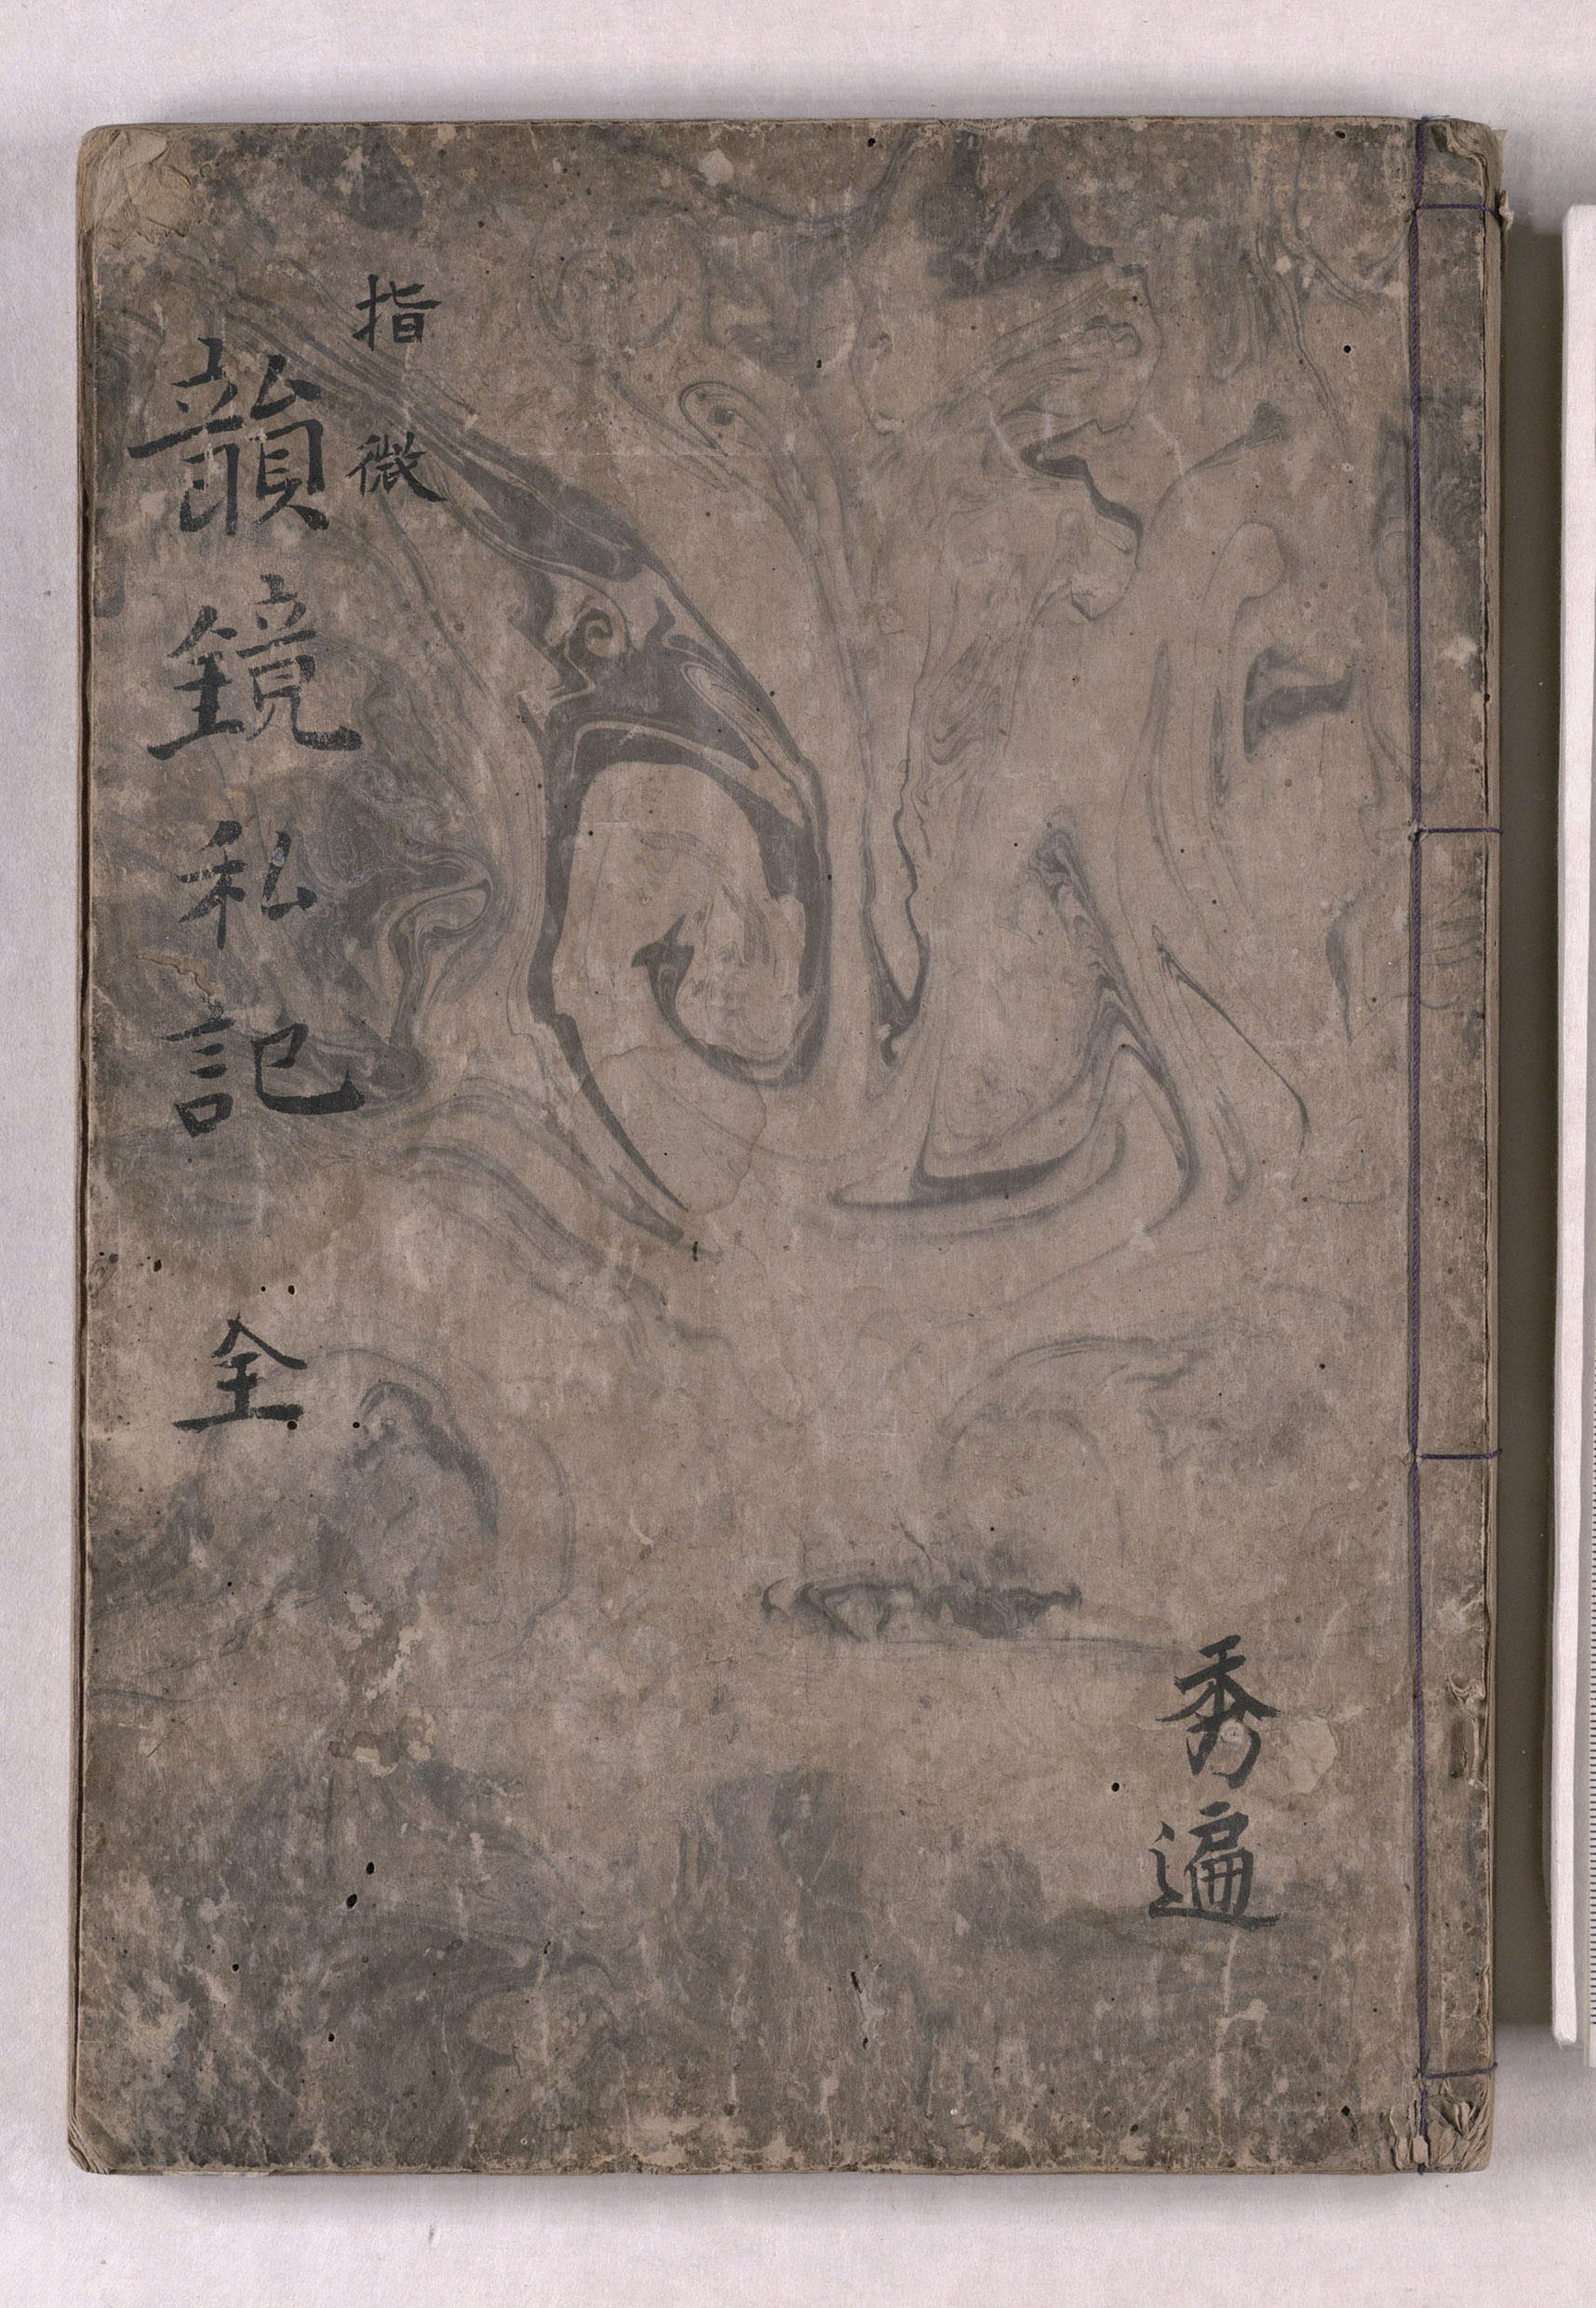 秀遍
指微
韻鏡私記 全